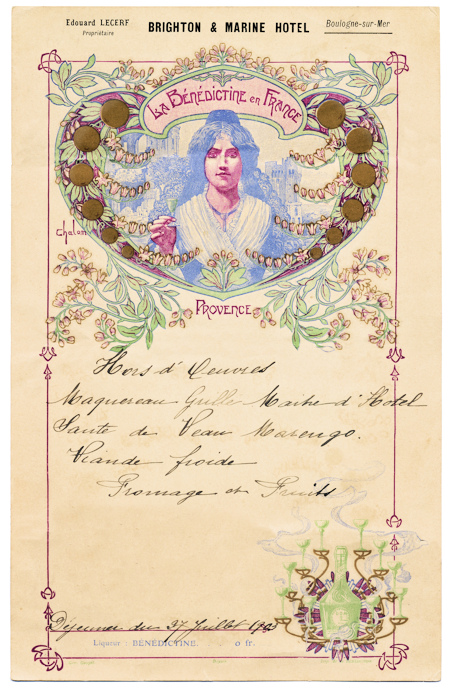 Edouard LECERF
Propriétaire
BRIGHTON & MARINE HOTEL
Boulogne-sur-Mer
LA BÉNÉDICTINE EN FRANCE
Chalon
PROVENCE
Hors d'Oeuvres
Maquereau Grillé Maitre d'Hotel
Sauté de Veau Marengo.
Viande froide
Fromage et Fruits
Déjeuner du 27 Juillet
Liqueur: BÉNÉDICTINE. 0 fr.